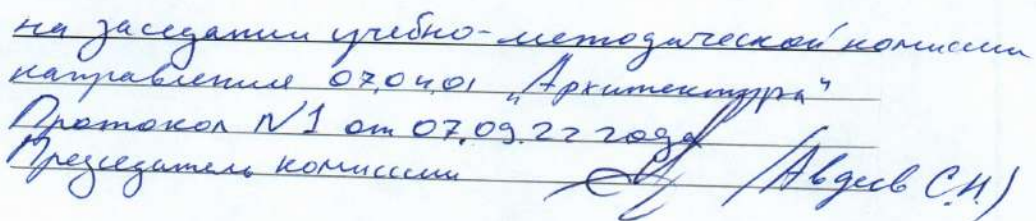 на заседании учебно-методической комиссии
направления 07.04.01 "Архитектура"
Протокол N1 от 07.09.22 года
Председатель комиссии /Авдеев С.Н.)